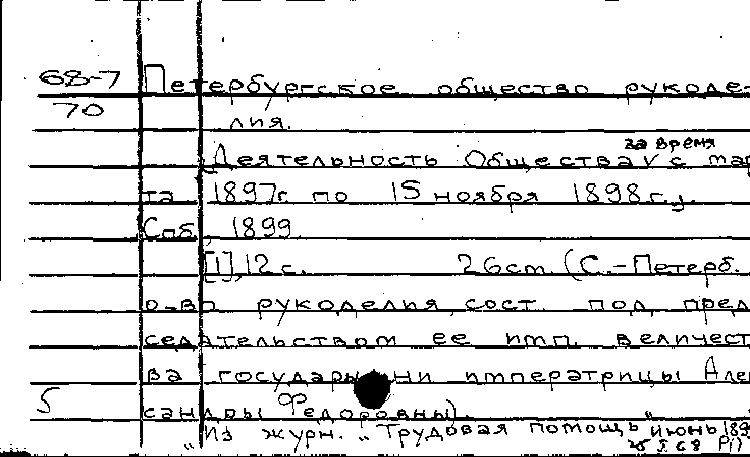 68-7 Петербургское общество рукоде-
70 лия.
за время
[Деятельность Общества v с мар-
та 1897г. по 15 ноября 1898 г.].
Спб., 1899.
[1], 12 с. 26 cm. (С.-Петерб.
о-во рукоделия, сост. под пред
седательством ее имп. величест
ва государыни императрицы Алек
5 сандры Федоровны).
"Из журн. "Трудовая помощь" июнь 189